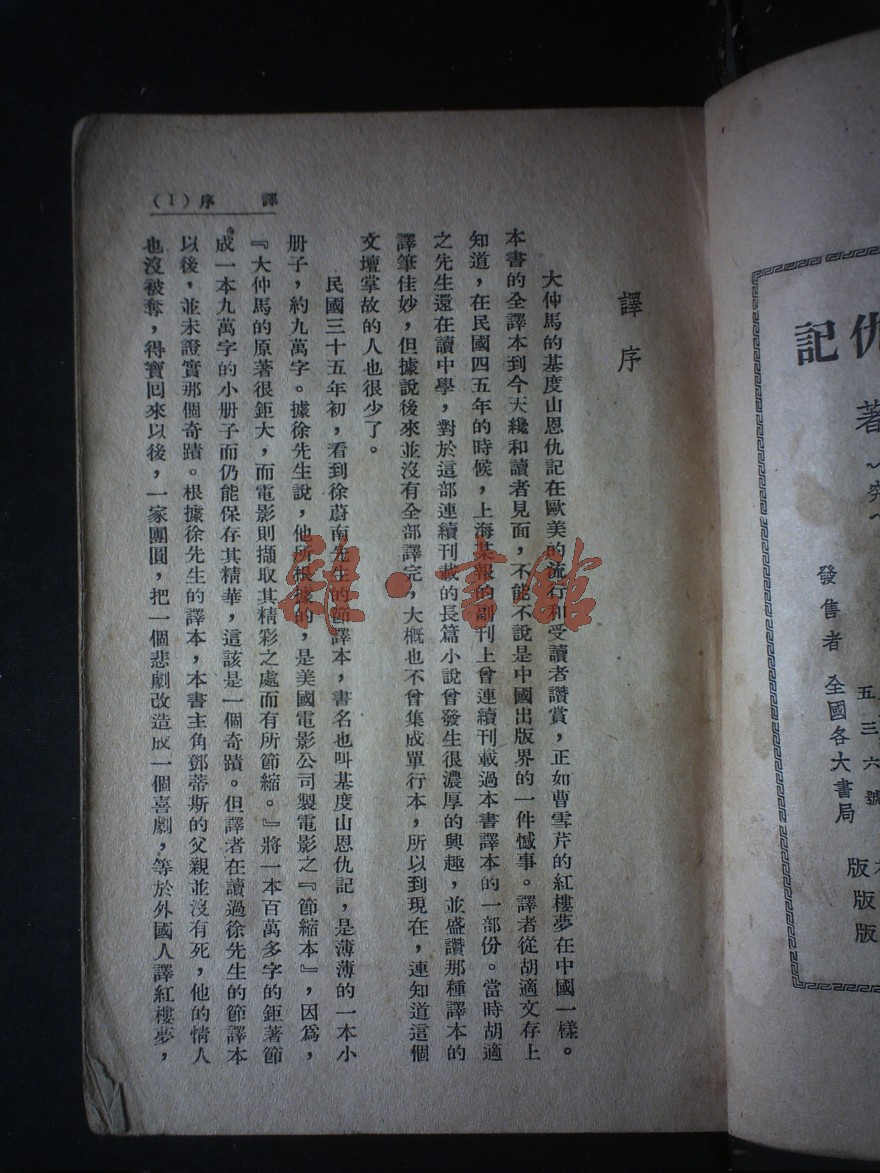 譯　序（1）
譯序
大仲馬的基度山恩仇記在歐美的流行和受讀者讚賞，正如曹雪芹的紅樓夢在中國一樣。
本書的全譯本到今天纔和讀者見面，不能不說是中國出版界的一件憾事。譯者從胡適文存上
知道，在民國四五年的時候，上海某報的副刊上曾連續刊載過本書譯本的一部份。當時胡適
之先生還在讀中學，對於這部連續刊載的長篇小說曾發生很濃厚的興趣，並盛讚那種譯本的
譯筆佳妙，但據說後來並沒有全部譯完，大概也不曾集成單行本，所以到現在，連知道這個
文壇掌故的人也很少了。
民國三十五年初，看到徐蔚南先生的節譯本，書名也叫基度山恩仇記，是薄薄的一本小
册子，約九萬字。據徐先生說，他所根據的，是美國電影公司製電影之『節縮本』，因爲，
『大仲馬的原著很鉅大，而電影則擷取其精彩之處而有所節縮。』將一本百萬多字的鉅著節
成一本九萬字的小册子而仍能保存其精華，這該是一個奇蹟。但譯者在讀過徐先生的節譯本
以後，並未證實那個奇蹟。根據徐先生的譯本，本書主角鄧蒂斯的父親並沒有死，他的情人
也沒被奪，得寶回來以後，一家團圓，把一個悲劇改造成一個喜劇，等於外國人譯紅樓夢，
仇記
著
發售者　全國各大書局
五三六號
版
版
版
雜·書館